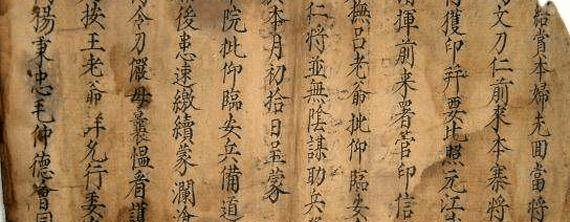 當本婦先回當將
文刀仁前來本寨將
獲印幷要比照元江
揮前来署管印信
撫呂老爺批仰臨安
仁將並無陰謀助兵
本月初拾日呈蒙
院批仰臨安兵備道
後患速繳續蒙瀾滄
令刀儼母曩愠看
按王老爺幷免行
楊秉忠毛仲德會同